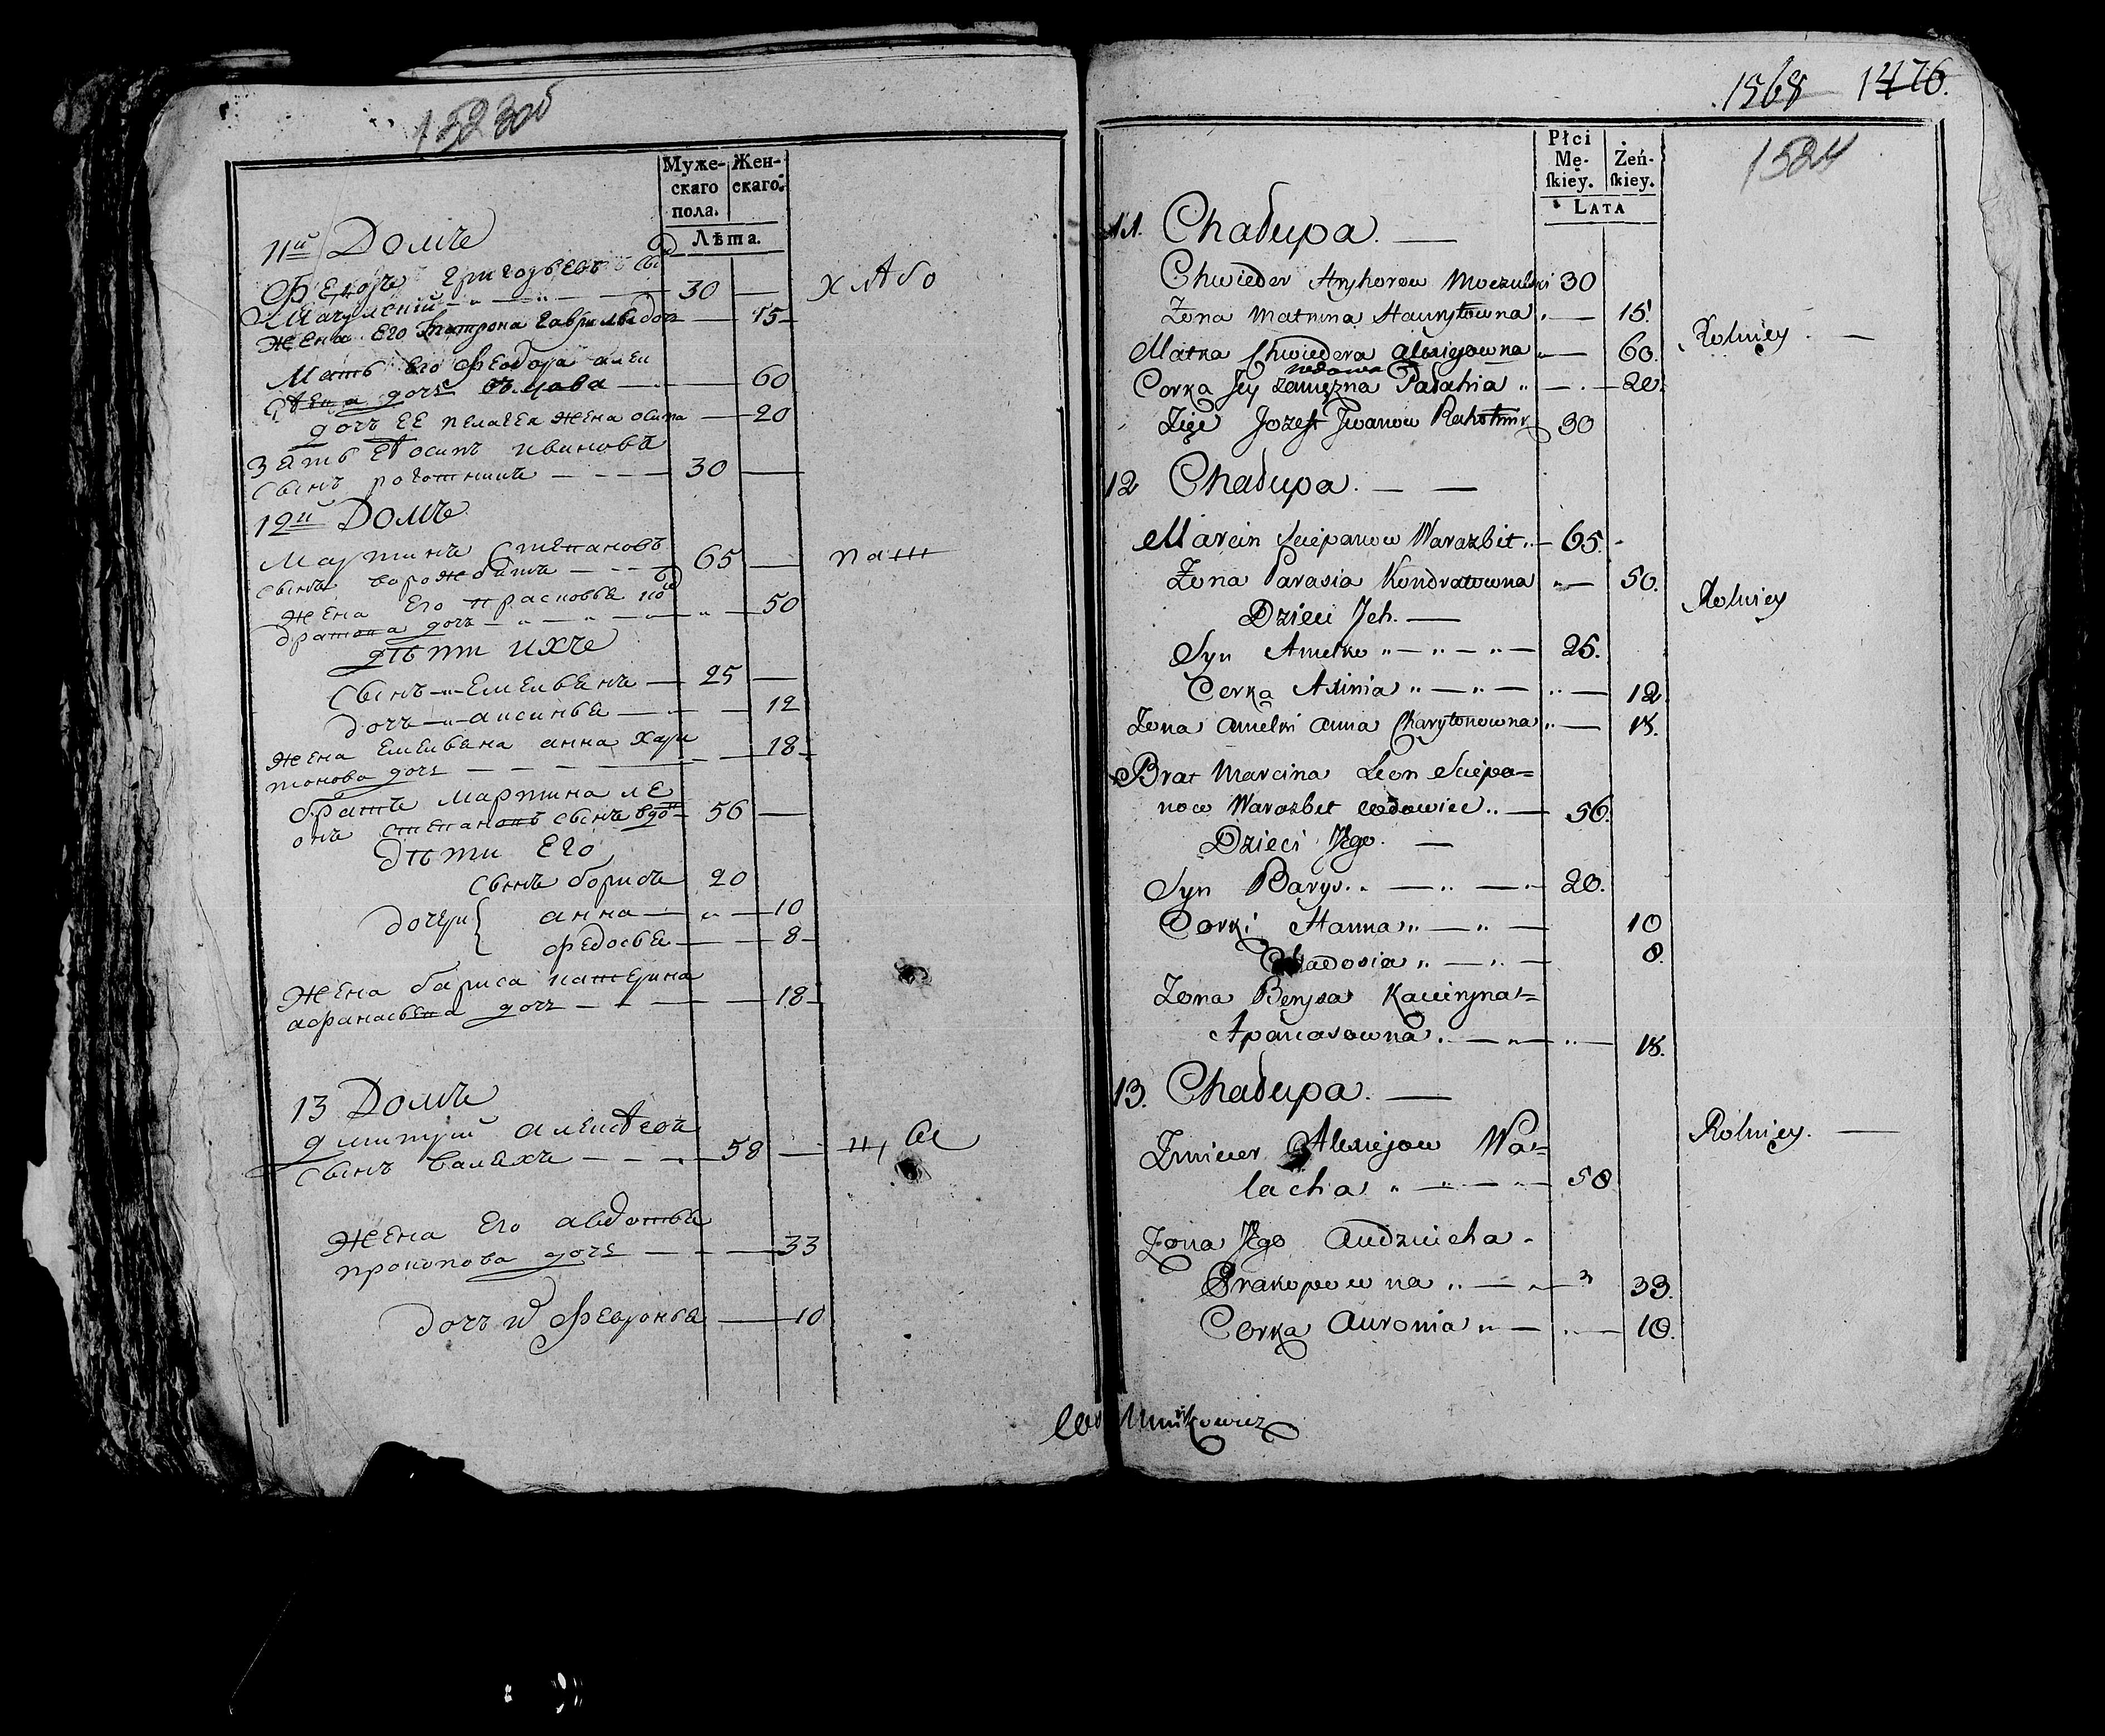 1523об
Муже-
скаго
пола.
Жен-
скаго.
Лѣта.
11й Домъ
Федоръ Григорьевъ сы
Мачулский 30
Жена его Матрона Гаврилова доч 15
хлѣбо
Мать его Феодора алек
сѣена дочь вдова 60
дочь ее пелагея жена осипа 20
Зять Iосипъ ивановъ
сынъ роготникъ 30
12й Домъ
Мартинъ Степановъ
сынъ ворожбитъ 65
паш
жена его прасковья ко
дратова дочь 50
дѣти ихъ
сынъ Емельянъ 25
дочь аксинья 12
жена Емельяна анна хари
тонова дочь 18
братъ Мартина ле
онъ степановъ сынъ вдо 56
дѣти Его
сынъ борисъ 20
дочери анна 10
федосья 8
Жена бориса катерина
афанасьена дочь 18
13 Домъ
дмитрий алексѣевъ
сынъ валахъ 58
Жена Его авдотья
прокопова дочь 33
дочь их Февронья 10
1568 1476.
1524
Płci
Mę-
ſkiey.
Żeń-
ſkiey.
Lata
11. Chałupa.
Chwieder Hryhorow Moczulski 30
Żona Matruna Hawryłowna 15.
Rolnicy
Matka Chwiedera Alexiejowna 60.
wdowa
Corka Jey zamężna Pałahia 20.
Zięć Jozeff Jwanow Rahotnik 30
12 Chałupa.
Marcin Sciepanow Warazbit 65.
Żona Parasia Kondratowna 50.
Rolnicy
Dzieci Jch.
Syn Amelko 25.
Corka Axinia 12
Żona Amelki Anna Charytonowna 18.
Brat Marcina Leon Sciepa=
now Warazbit wdowiec 56.
Dzieci Jego.
Syn Barys 20.
Corki Hanna 10
Chadosia 8.
Żona Barysa Kacieryna
Apanasowna 18.
13. Chałupa.
Zmicier Alexiejow Wa=
łacha 58
Rolnicy.
Żona Jego Audziucha
Prakopowna 33.
Corka Auronia 10.